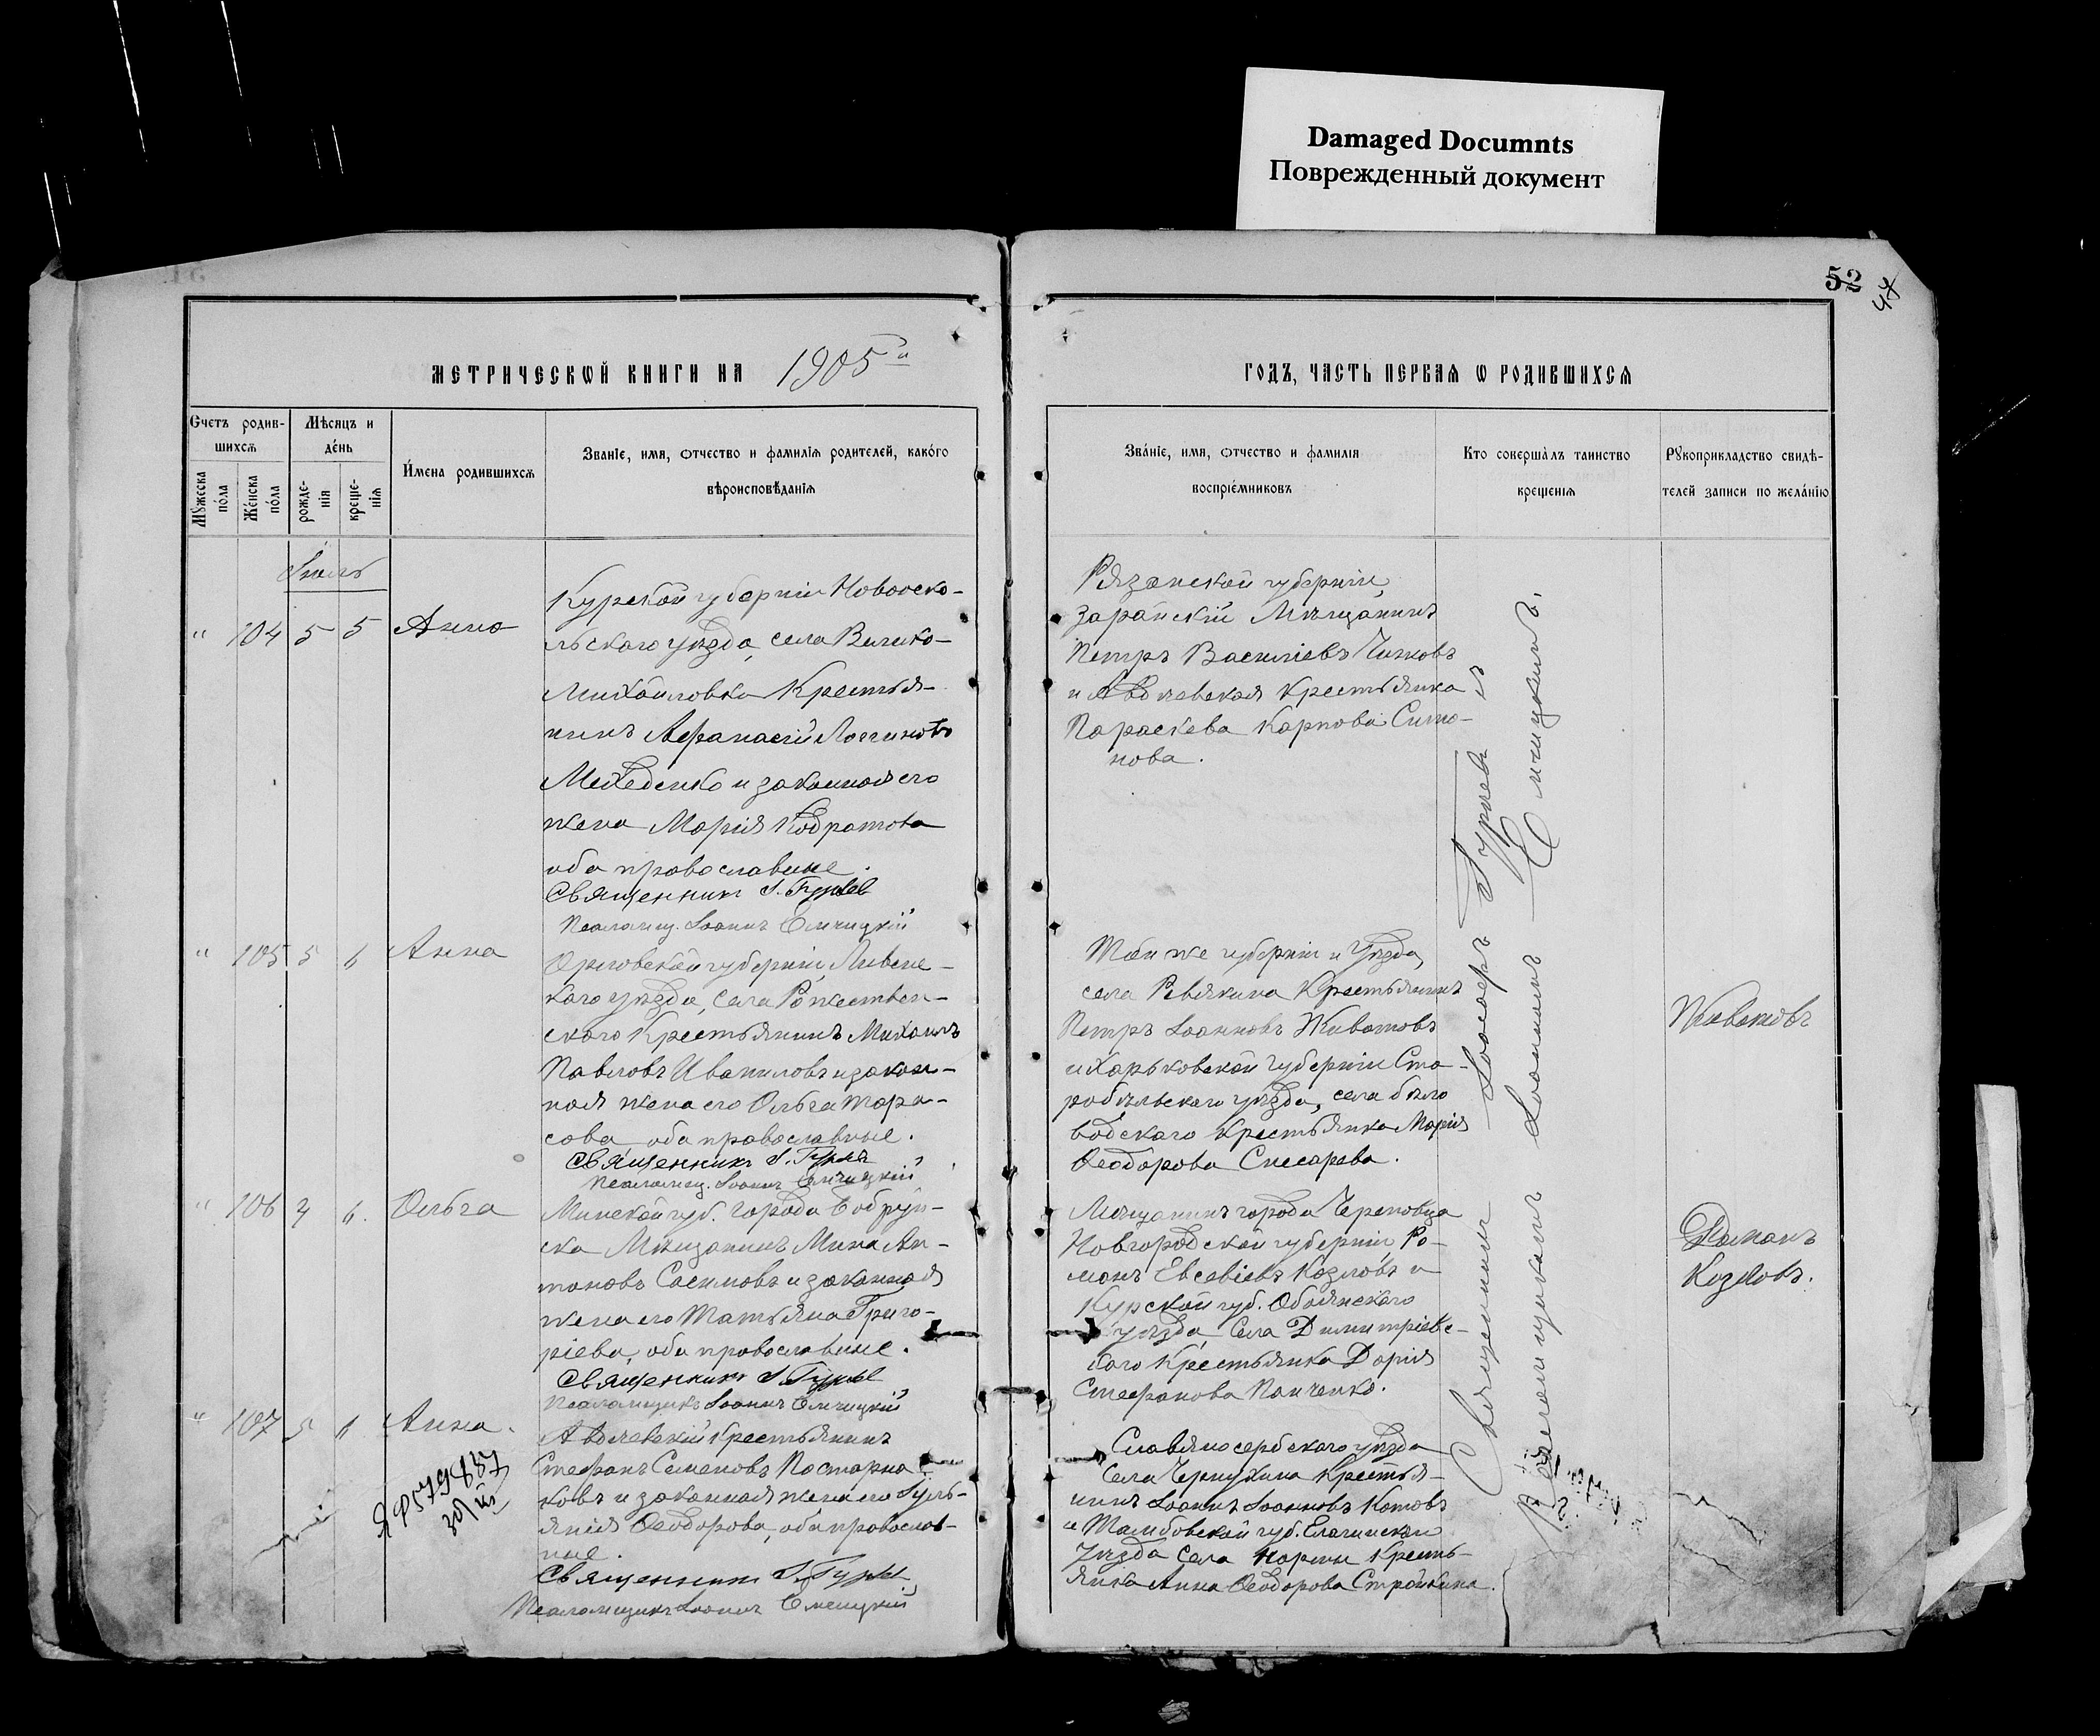 Damaged Documnts
Поврежденный документ
52
47
МЕТРИЧЕСКѠЙ КНИГИ НА 1905й
ГОДЪ, ЧАСТЬ ПЕРВАЯ Ѡ РОДИВШИХСѦ
Счетъ родив-
шихсѧ
Мѣсяцъ и
де́нь
Мꙋжеска
по́ла
Же́нска
по́ла
рожде-
нїѧ
креще-
нїѧ
И́мена родившихсѧ
Званїе, имя, ѻтчество и фамилїѧ родителей, како́го
вѣроисповѣданїѧ
Зва́нїе, имя, ѻтчество и фамилїѧ
воспрїе́мниковъ
Кто соверша̀лъ таинство
крещенїѧ
Рꙋкоприкладство свидѣ-
телей записи по жела́нїю
Іюль
" 104 5 5 Анна
Курской губерніи Новооско-
льскаго уѣзда, села Велико-
Михайловка Крестья-
нинъ Афанасій Логиновъ
Мехеденко и законная его
жена Марія Кодратова
оба православные.
Священникъ І. Гурьев
Псаломщ. Іоаннъ Емчицкій
Рязанской губерніи,
Зарайскій Мѣщанинъ
Петръ Василіевъ Чижовъ
и Авдѣевская крестьянка
Параскева Карпова Симо-
нова.
" 105 5 6 Анна
Орловской губерніи, Ливенс-
каго уѣзда, села Рожествен-
скаго Крестьянинъ Михаилъ
Павловъ Иваниловъ и закон-
ная жена его Ольга Тара-
сова оба православные.
Священникъ І. Гурьев
Псаломщ. Іоаннъ Емчицкій
Той же губерніи и Уѣзда,
села Ревякина Крестьянинъ
Петръ Іоанновъ Животовъ
и Харьковской Губерніи Ста-
робѣльскаго уѣзда, села бѣло
водскаго Крестьянка Марія
Ѳеодорова Слесарева.
Животовъ
" 106 4 6. Ольга
Минской губ. города Бобруй-
ска Мѣщанинъ Мина Ан-
тоновъ Сасимовъ и законная
жена его Татьяна Григо-
ріева, оба православные.
Священникъ І. Гурьев
Псаломщикъ Іоаннъ Емчицкій
Мѣщанинъ города Череповца
Новгородской губерніи, Ро-
манъ Евсевіевъ Козловъ и
Курской губ. Обоянскаго
уѣзда, Села Димитріевс-
каго Крестьянка Дарія
Стефанова Панченко.
Романъ
Козловъ.
" 107 5 6 Анна.
Авдѣевскій Крестьянинъ
Стефанъ Семеновъ Постарна-
ковъ и законная жена его Гуль-
янія Ѳеодорова, оба православ-
ные.
Священникъ І. Гурьев
Псаломщикъ Іоаннъ Емчицкій
Славяносербскаго уѣзда
Села Чернухина Крестья-
нинъ Іоаннъ Іоанновъ Котовъ
и Тамбовской губ. Елатомскаго
Уѣзда Села Нармы Кресть-
янка Анна Ѳеодорова Стройкина.
Священникъ Іосифъ Гурьевъ съ
Псаломщикомъ Іоанномъ Емчицкимъ.